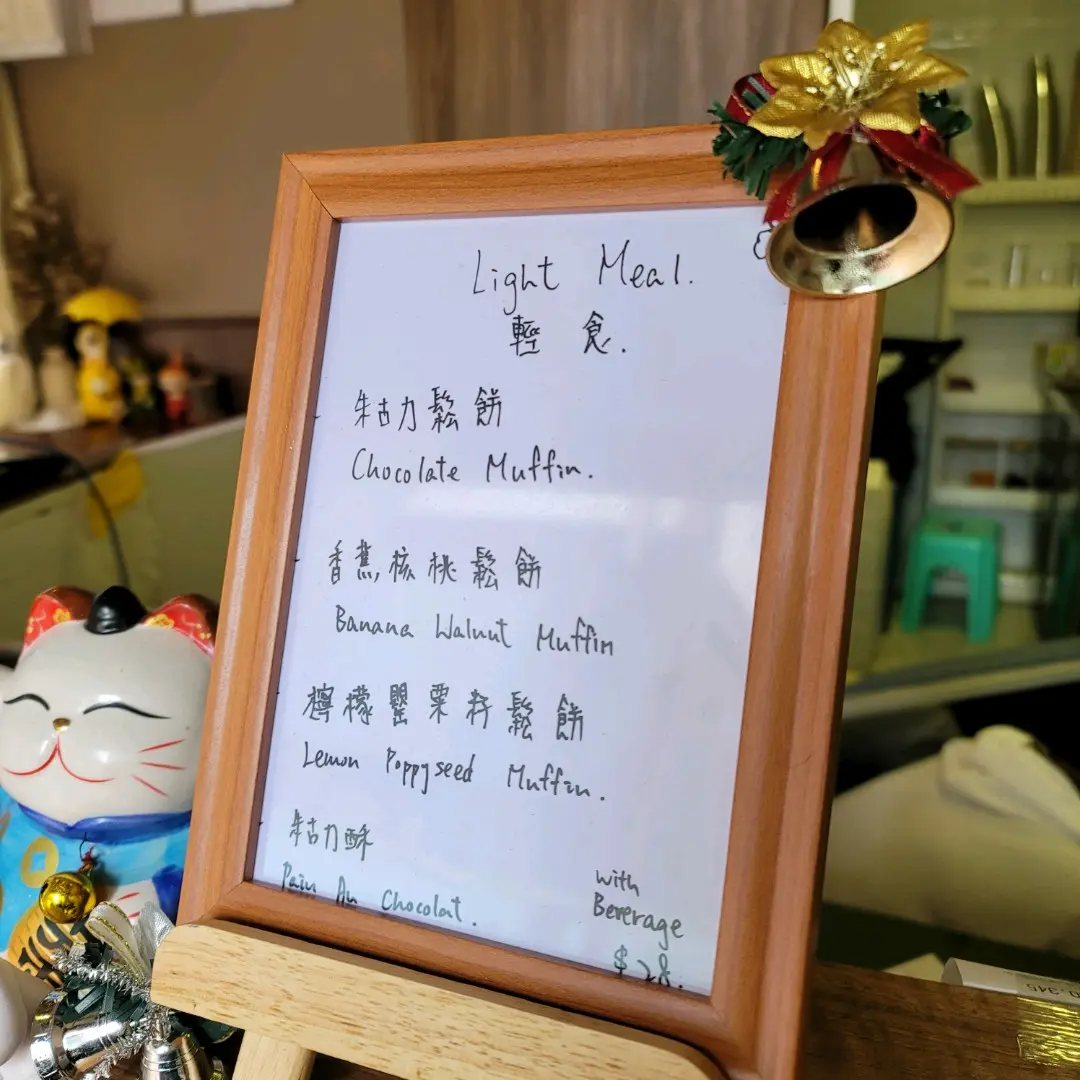 Light Meal.
輕食.
朱古力鬆餅
Chocolate Muffin.
香蕉核桃鬆餅
Banana Walnut Muffin
檸檬罌粟籽鬆餅
Lemon Poppyseed Muffin.
朱古力酥
Pain Au Chocolat.
with
Beverage
$28.